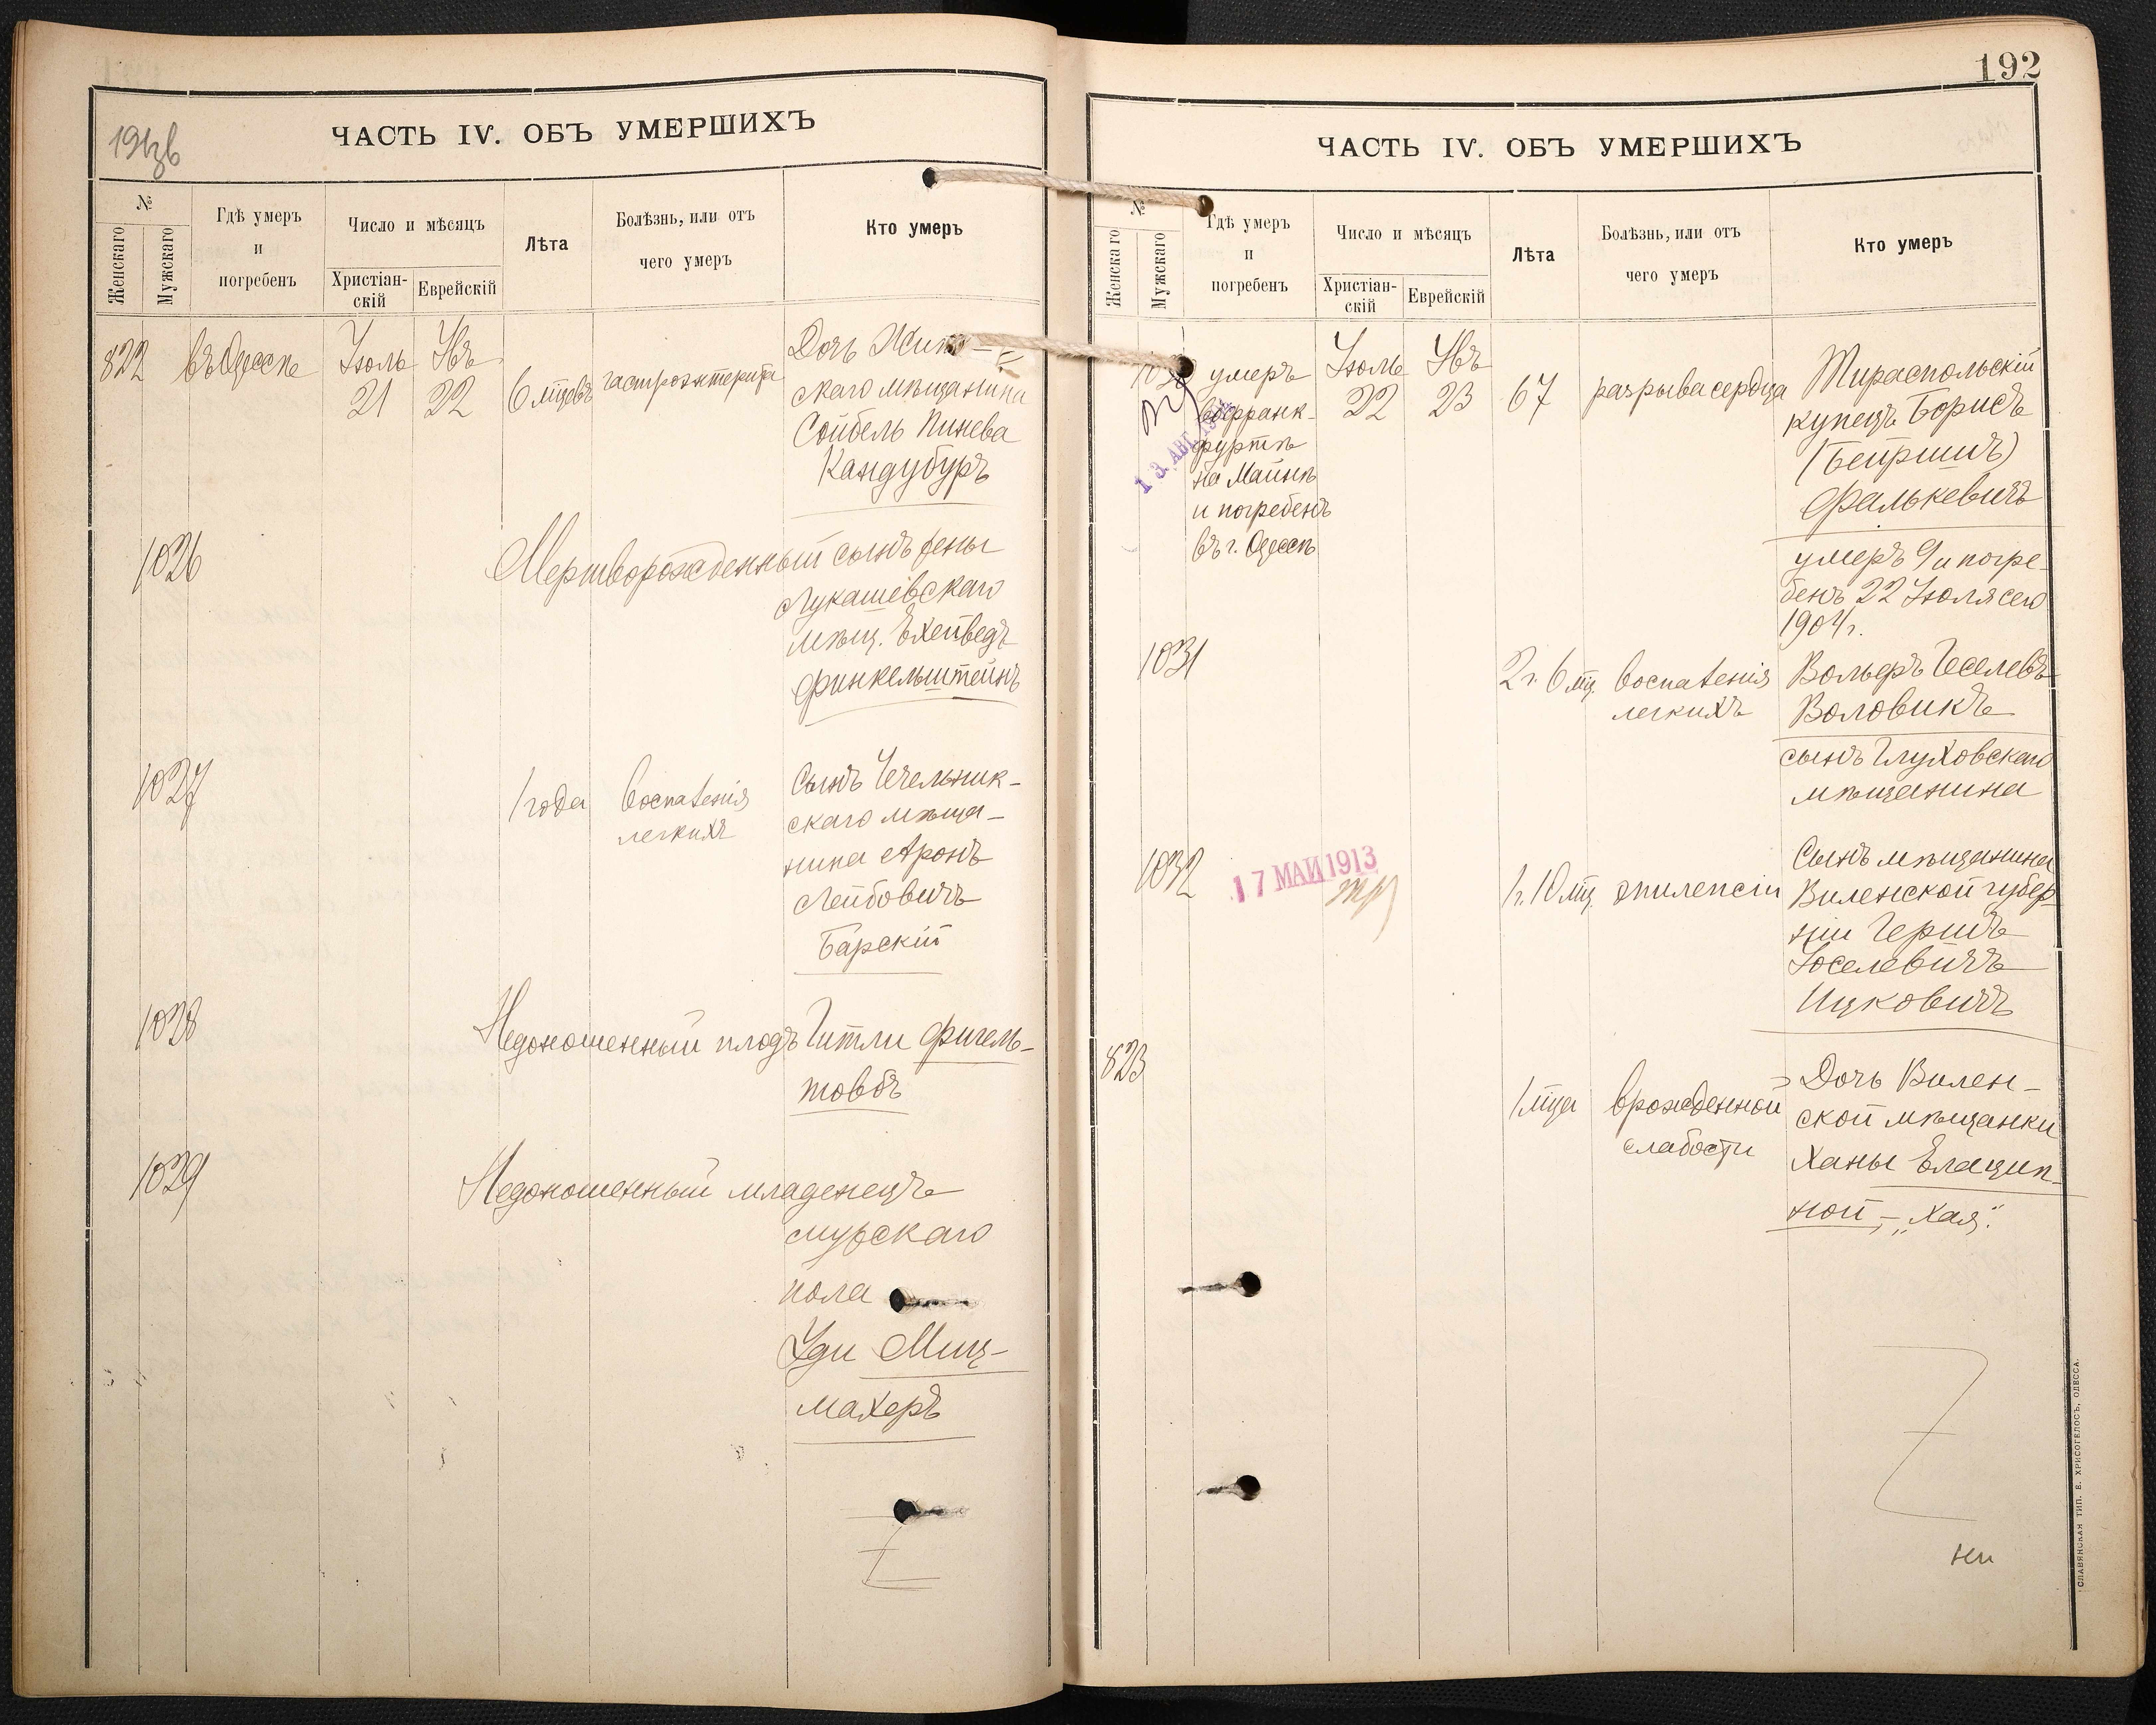 ЧАСТЬ IV. ОБЪ УМЕРШИХЪ
№
Женскаго
Мужскаго
Гдѣ умеръ
и
погребенъ
Число и мѣсяцъ
Христіан-
скій
Еврейскій
Лѣта
Болѣзнь, или отъ
чего умеръ
Кто умеръ
822 въ Одессѣ Іюль 21 Явъ 22 6 мцевъ гастроэнтерита
Дочь
скаго мѣщанина
Сойбель Пинева
Кандубуръ
1026 Мертворожденный сынъ жены
Лукашевскаго
мѣщ. Ехейведъ
Финкельштейнъ
1027 1 года воспаленія
легкихъ
Сынъ Чечельник-
скаго мѣща-
нина Аронъ
Лейбовичъ
Барскій
1028 Недоношенный плодъ Гитли Фигель-
товбъ
1029 Недоношенный младенецъ
мужскаго
пола
Уди Миц-
махеръ
192
ЧАСТЬ IV. ОБЪ УМЕРШИХЪ
№
Женскаго
Мужскаго
Гдѣ умеръ
и
погребенъ
Число и мѣсяцъ
Христіан-
скій
Еврейскій
Лѣта
Болѣзнь, или отъ
чего умеръ
Кто умеръ
умеръ
во Франк-
фуртѣ
на Майнѣ
и погребенъ
въ г. Одессѣ
13 АВГ
Іюль 22 Явъ 23 67 разрыва сердца
Тираспольскій
купецъ Борисъ
(Бейришъ)
Фалькевичъ
умеръ 9 и погре-
бенъ 22 Іюля сего
1904 г.
1031 2 г. 6 мц. воспаленія
легкихъ
Вольфъ Геселевъ
Воловикъ
сынъ Глуховскаго
мѣщанина
1032 17 МАЙ 1913 1 г. 10 мц. эпилепсіи
Сынъ мѣщанина
Виленской губер-
ніи Гершъ
Іоселевичъ
Ицковичъ
823 1 мца врожденной
слабости
Дочь Вилен-
ской мѣщанки
Ханы Елацип-
ной - „Хая".
СЛАВЯНСКАЯ ТИП. Е. ХРИСОГЕЛОСЪ, ОДЕССА.